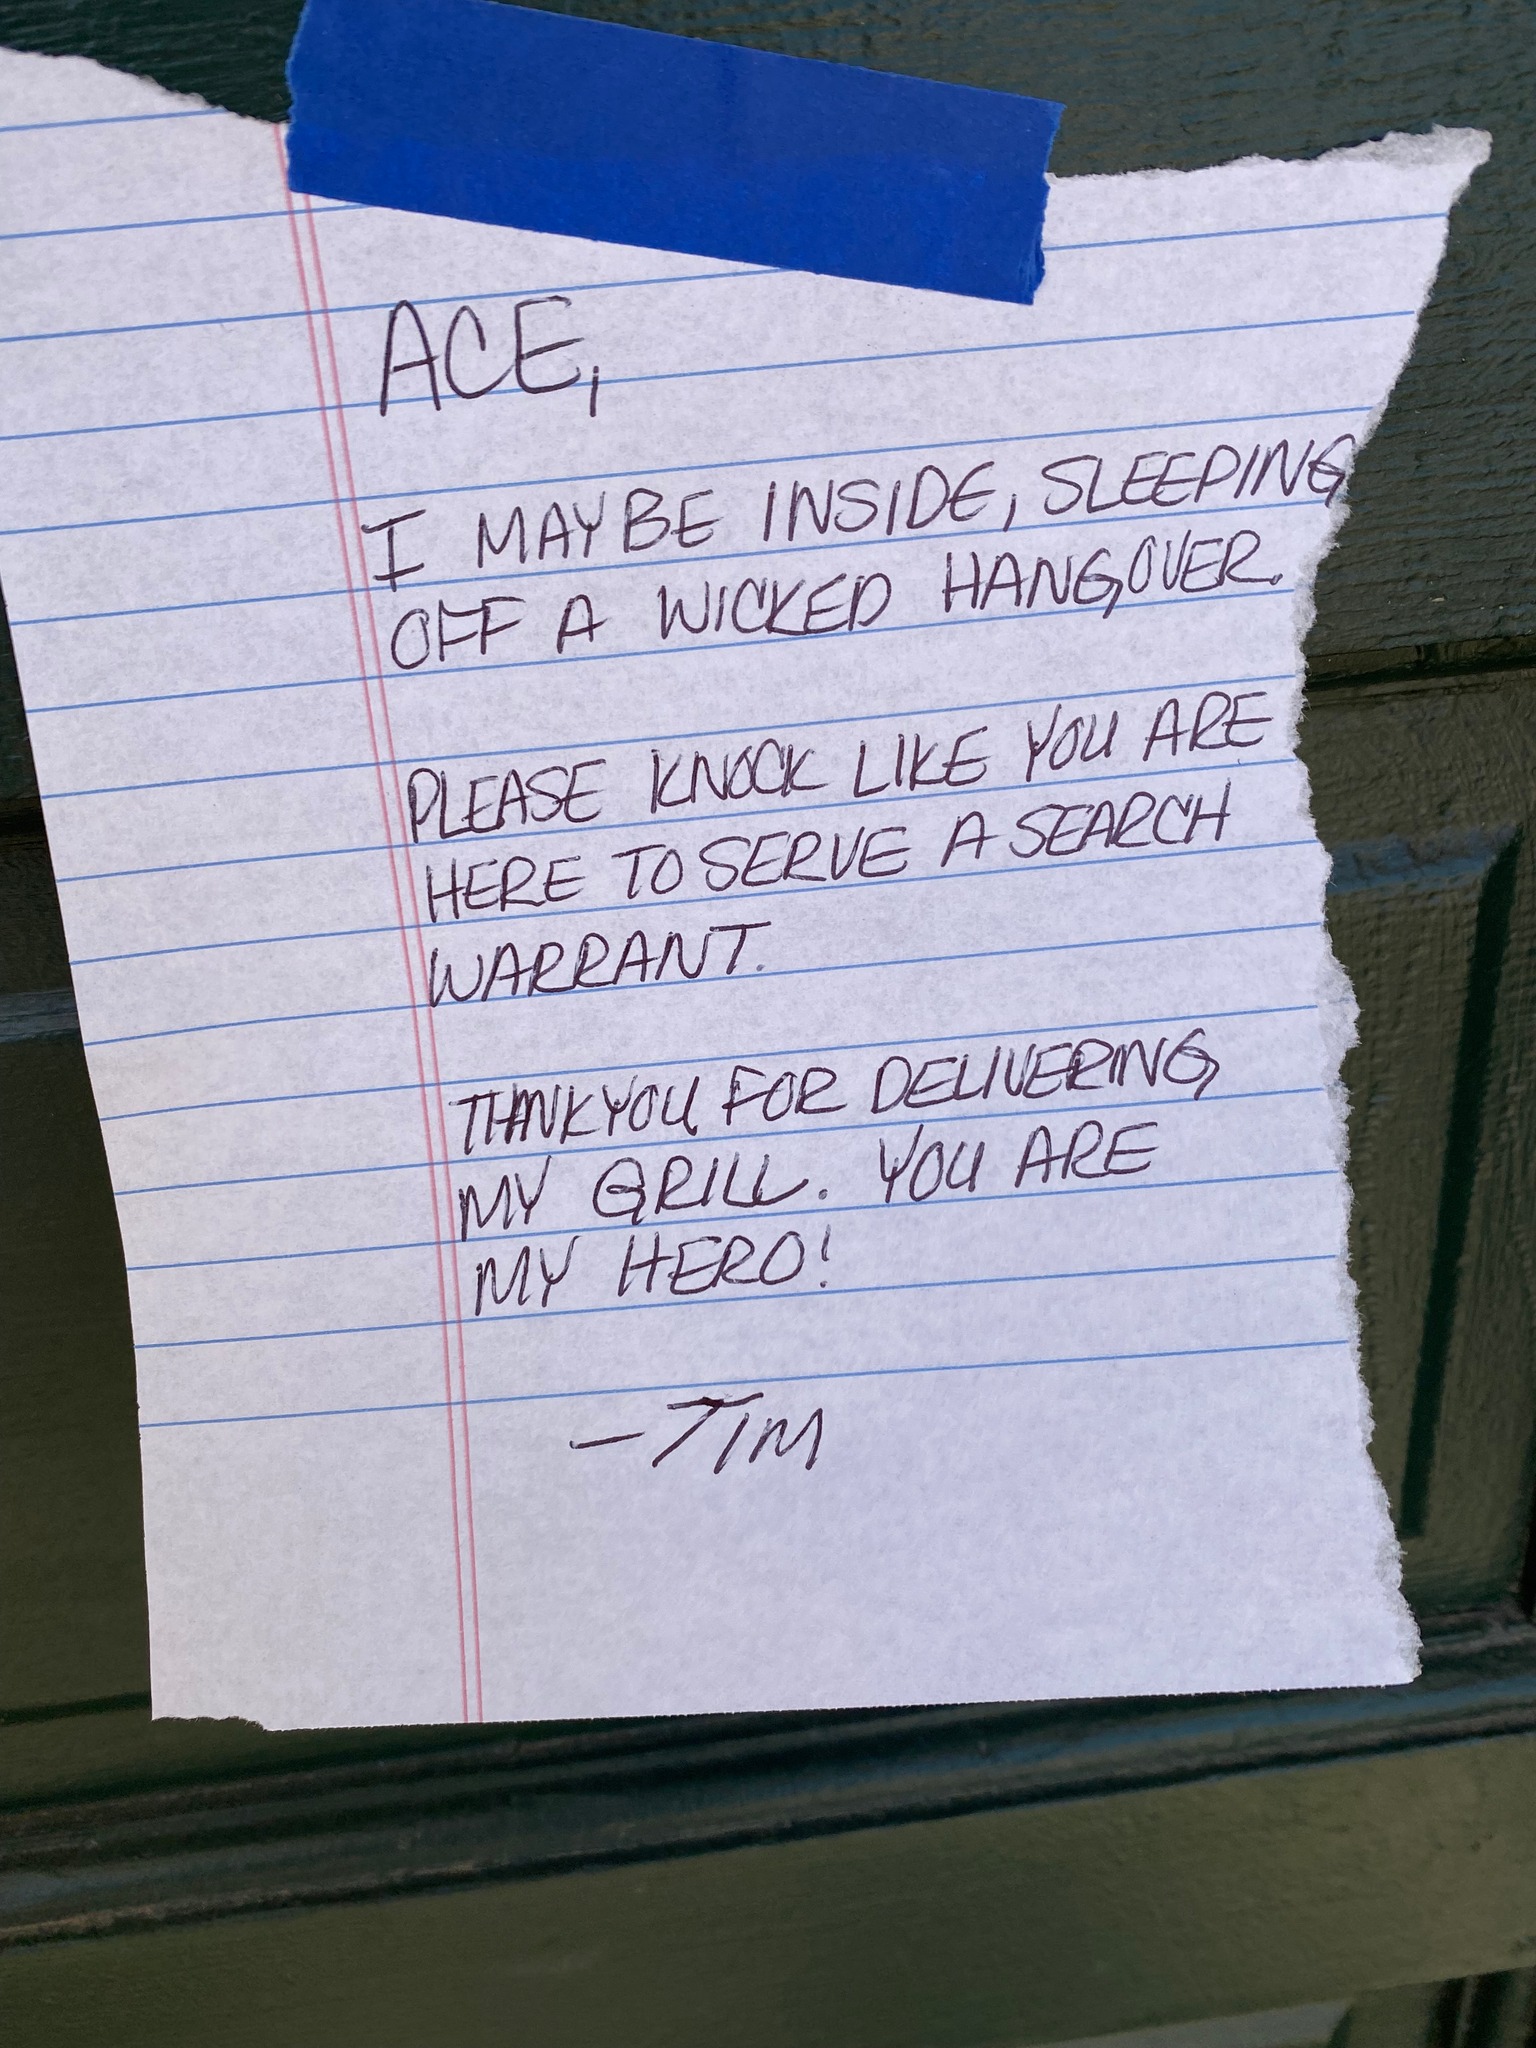 ACE,
I MAYBE INSIDE, SLEEPING
OFF A WICKED HANGOVER.
PLEASE KNOCK LIKE YOU ARE
HERE TO SERVE A SEARCH
WARRANT.
THANK YOU FOR DELIVERING
MY GRILL. YOU ARE
MY HERO!
-TIM